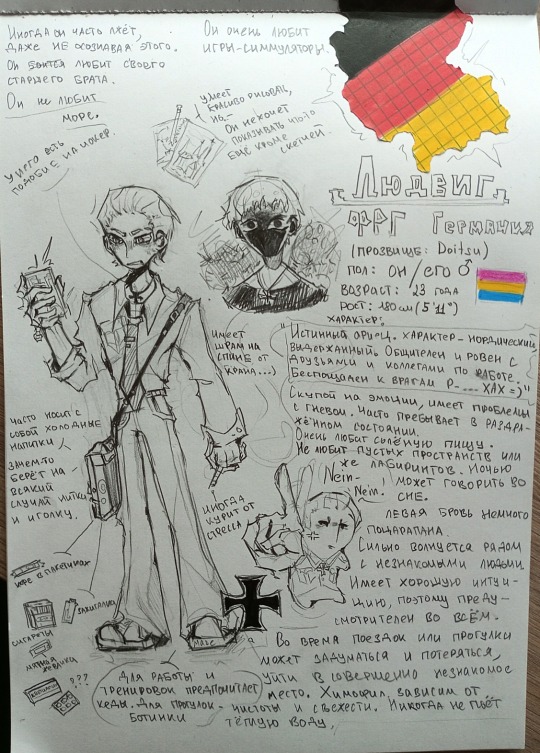 Иногда он часто лжёт,
даже не осознавая этого.
Он боится любит своего
старшего брата.
Он не любит
море.
Он очень любит
игры-симмуляторы.
умеет
красиво рисовать,
но,-
Он не хочет
показывать что-то
ещё кроме
скетчей.
у него есть
подобие на чокер.
Людвиг
ФРГ Германия
(прозвище: Doitsu)
пол: он/его ♂
возраст: 23 года
рост: 180 см (5'11")
характер:
"Истинный ариец. Характер - нордический,
выдержанный. Общителен и ровен с
друзьями и коллегами по работе.
Беспощаден к врагам Р-... ХАХ =)"
Скупой на эмоции, имеет проблемы
с гневом. Часто пребывает в раздра-
жённом состоянии.
Очень любит солёную пищу.
Не любит пустых пространств или
же лабиринтов. Ночью
может говорить во
сне.
Nein-
Nein.
Левая бровь немного
поцарапана.
Сильно волнуется рядом
с незнакомыми людьми.
Имеет хорошую интуи-
цию, поэтому преду-
смотрителен во всём.
Во время поездок или прогулки
может задуматься и потеряться,
уйти в совершенно незнакомое
место. Химощил. зависим от
чистоты и свежести. Никогда не пьёт
тёплую воду.
имеет
шрам на
спине от
часто носит с
собой холодные
напитки
зачем-то
берёт на
всякий
случай нитки
и иголку.
иногда
курит от
стресса
кофе в пакетиках
сигареты
зажигалка
мятная
жевачка
???
Для работы и
тренировок предпочитает
кеды. Для прогулок -
ботинки